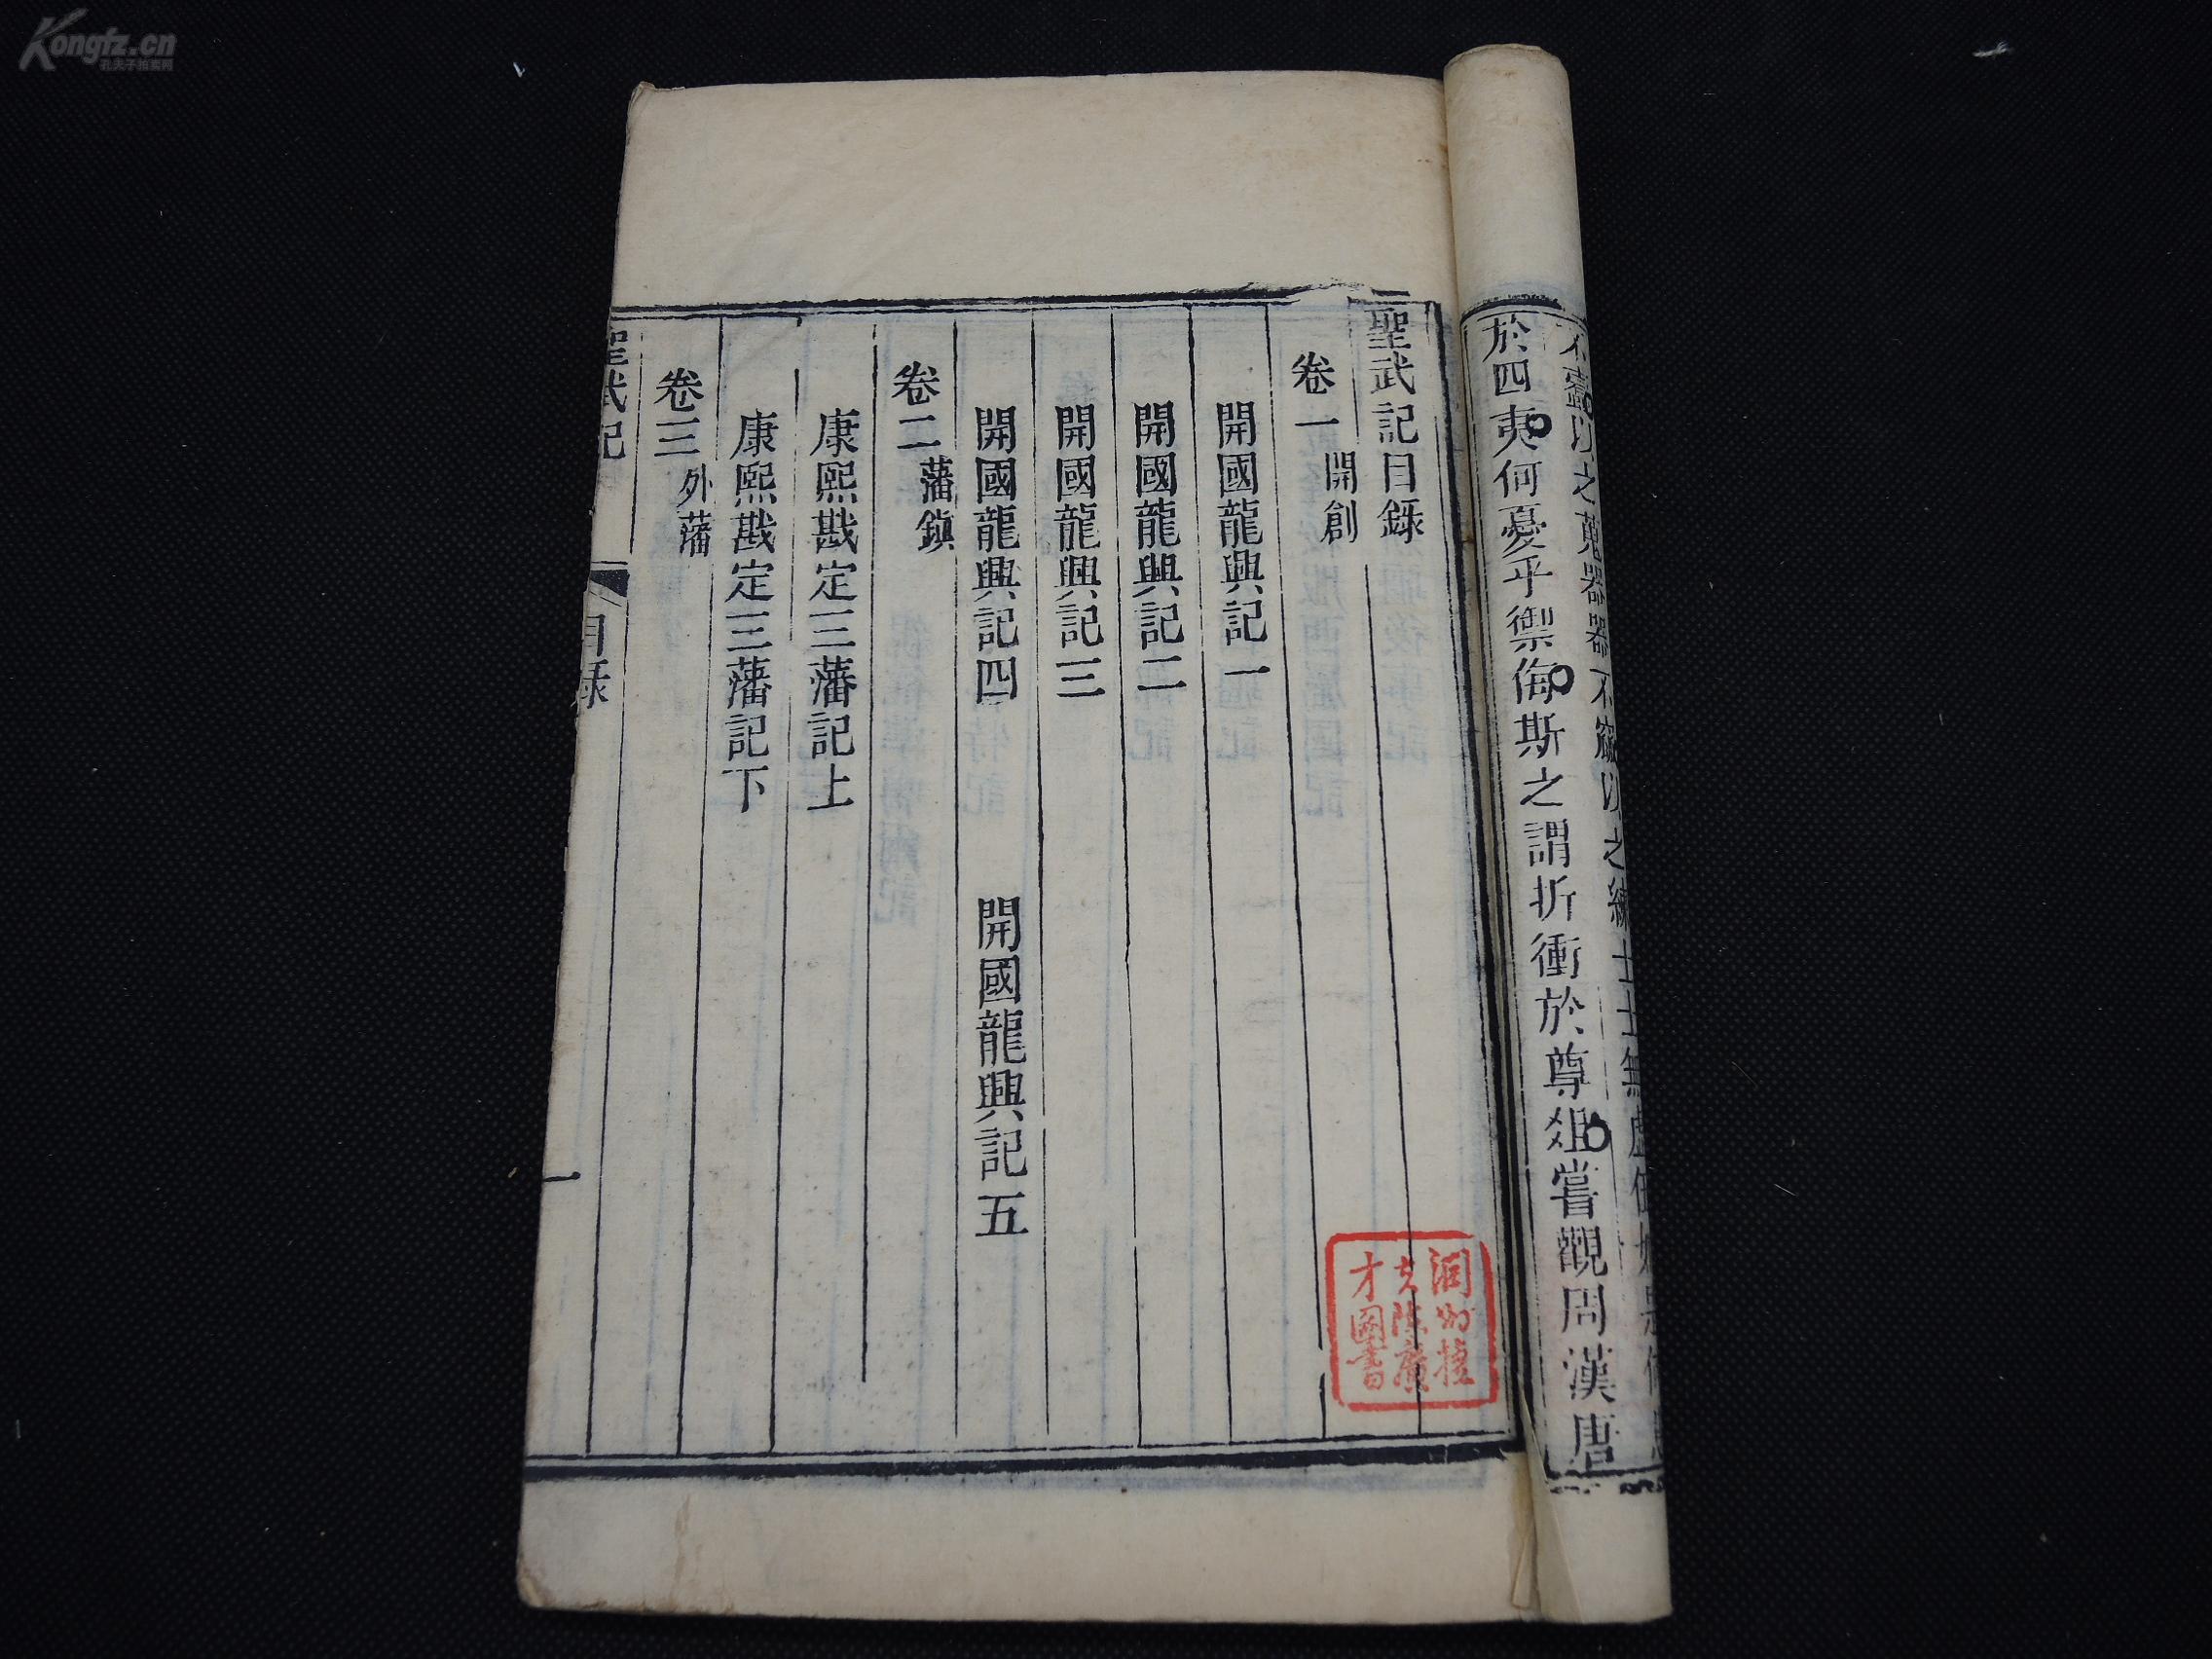 Kongfz.cn
孔夫子拍卖网
之蒐器器不窳
之練士士無虛伍如是
於四夷何憂乎禦侮斯之謂折衝於尊俎嘗觀周漢唐
聖武記目録
卷一 開創
開國龍興記一
開國龍興記二
開國龍興記三
開國龍興記四 開國龍興記五
卷二 藩鎮
康熙戡定三藩記上
康熙戡定三藩記下
卷三 外藩
聖武記 目録 一
陳廣
才圖書